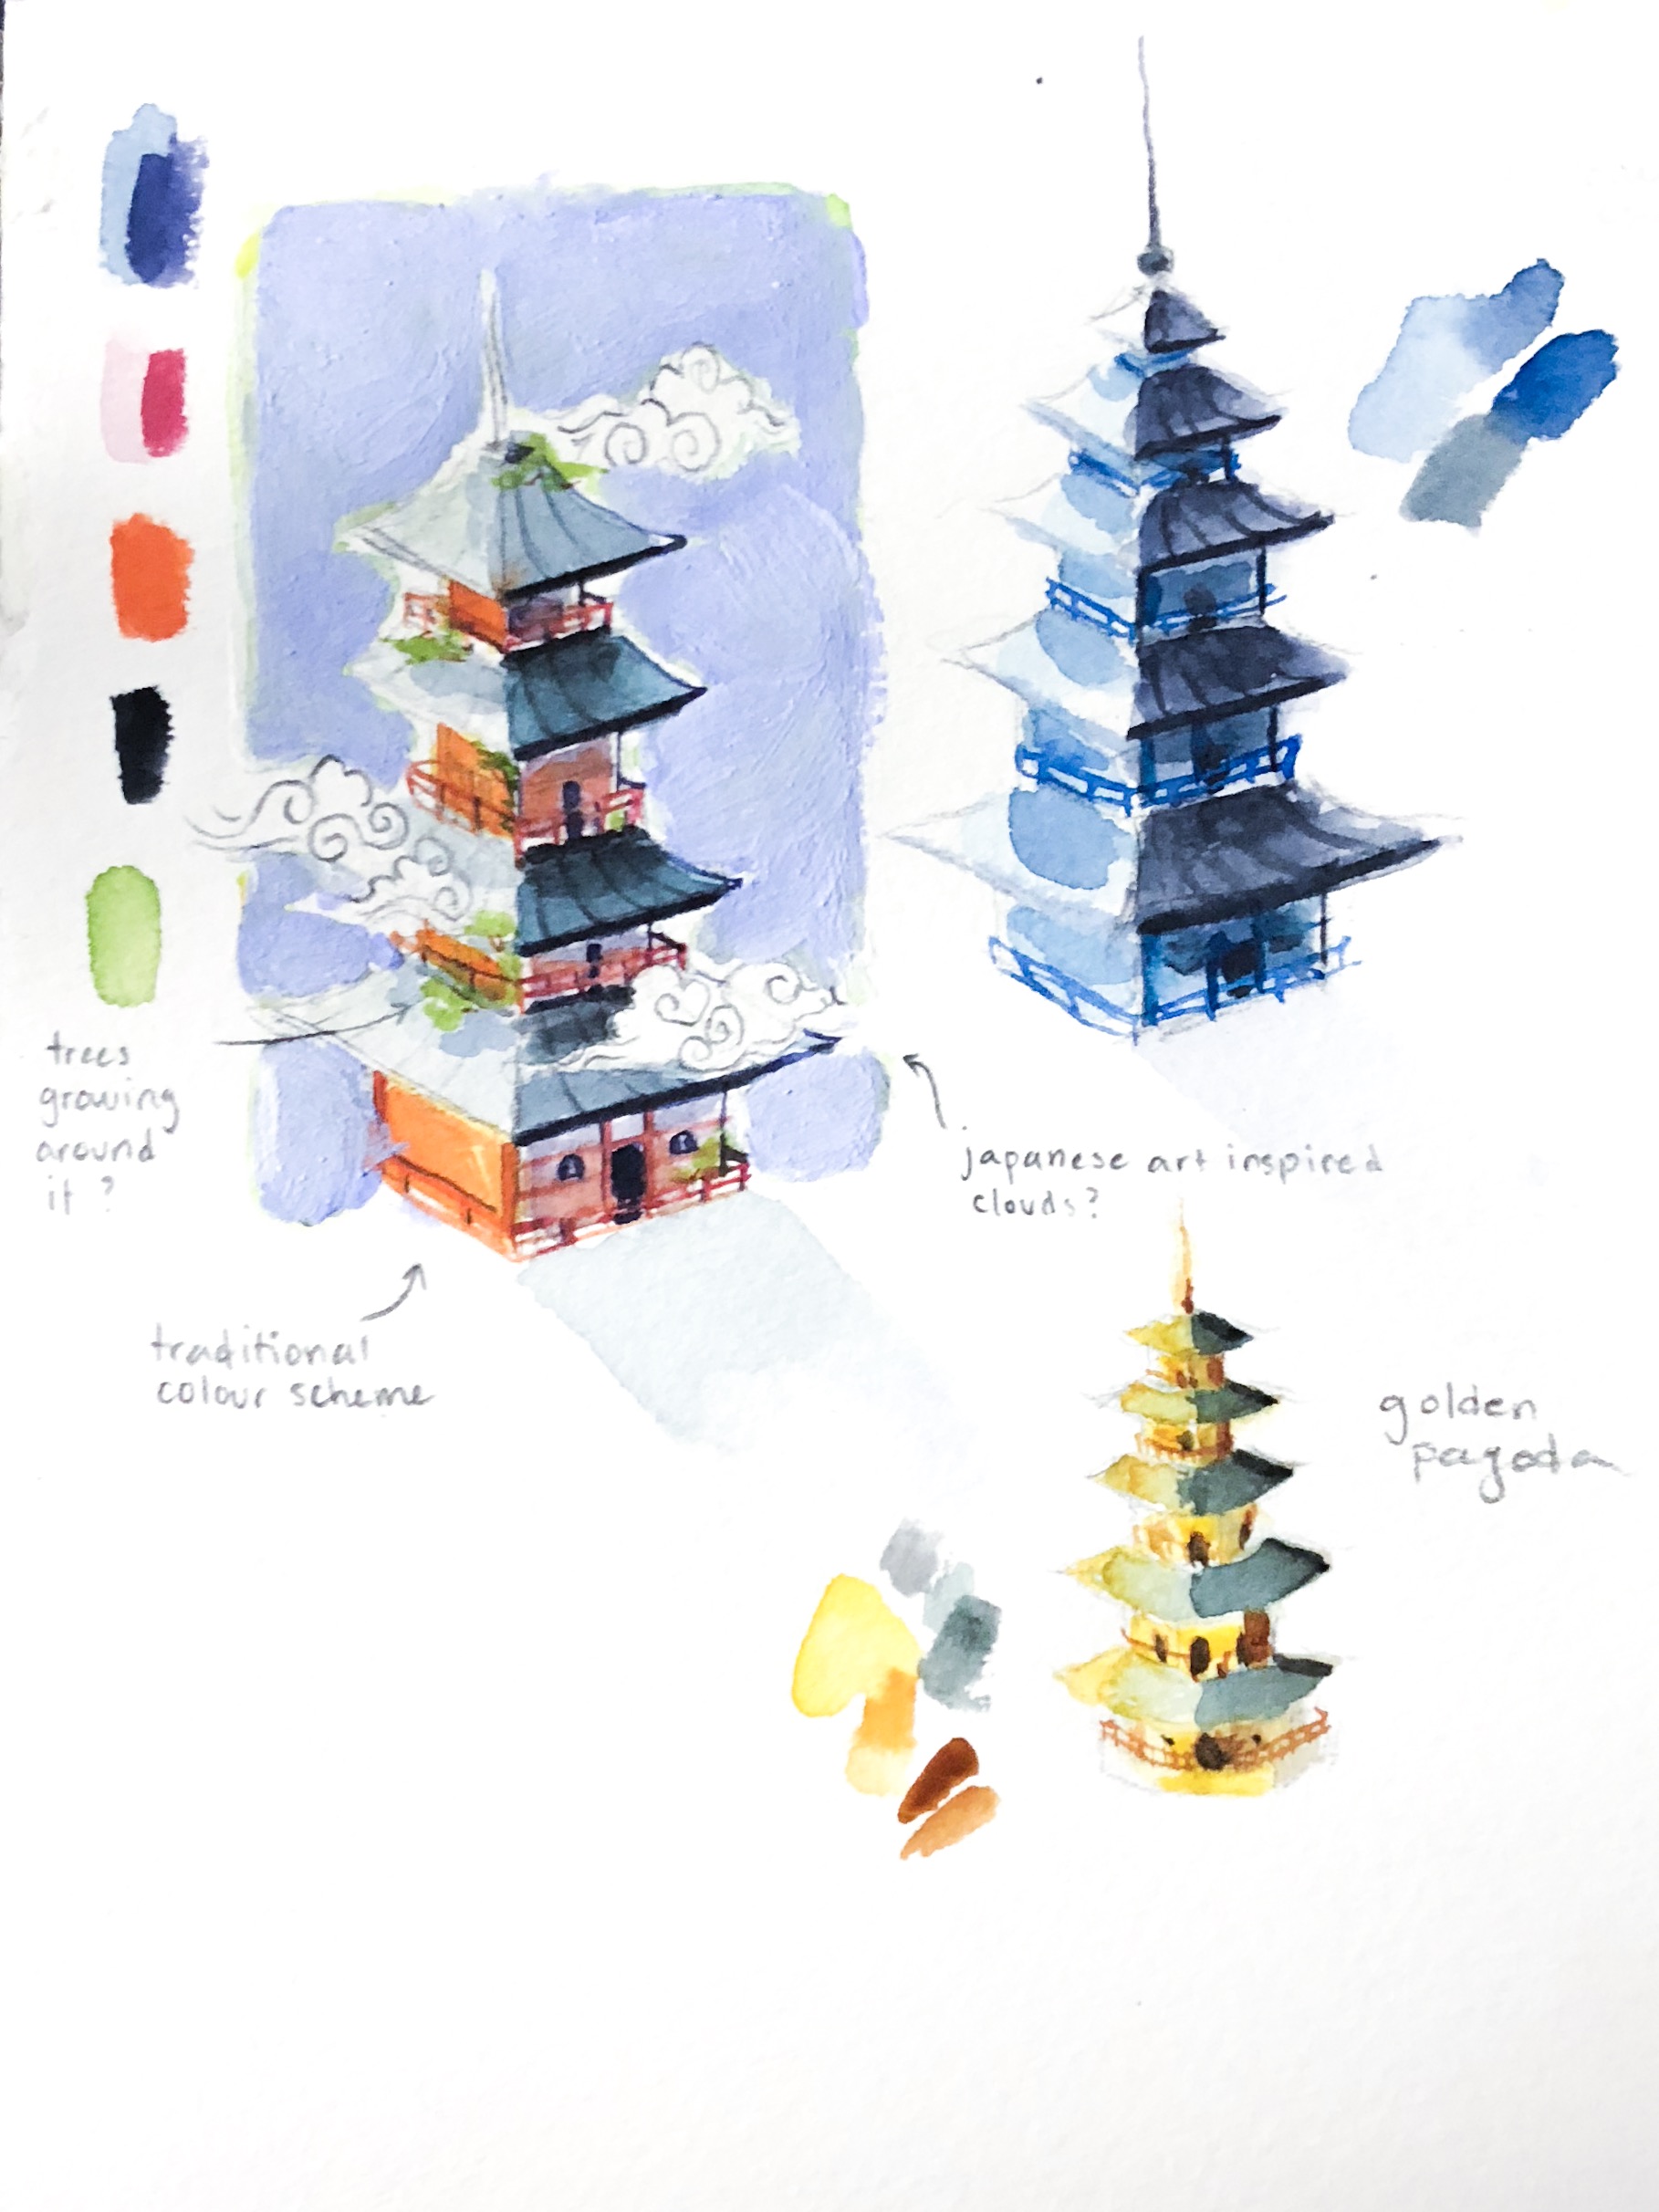 trees
growing
around
it?
japanese art inspired
clouds?
traditional
colour scheme
golden
pagoda